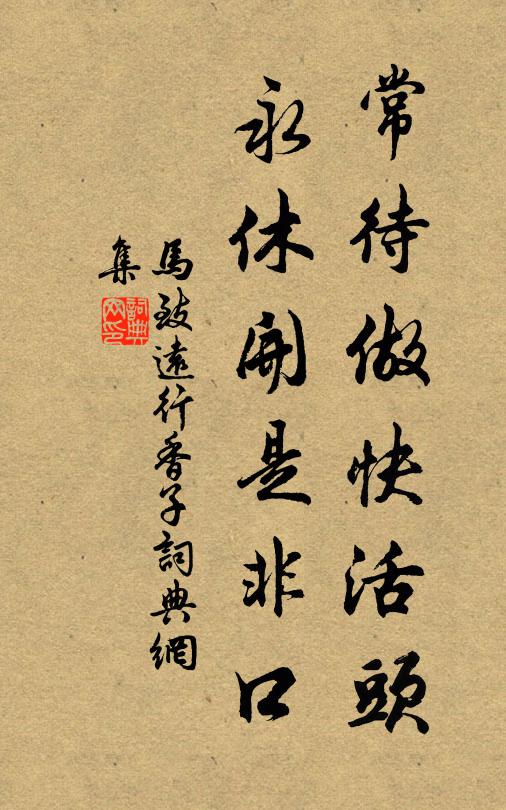 常待做快活頭
永休開是非口
馬致遠行香子詞典網
集
詞典網印